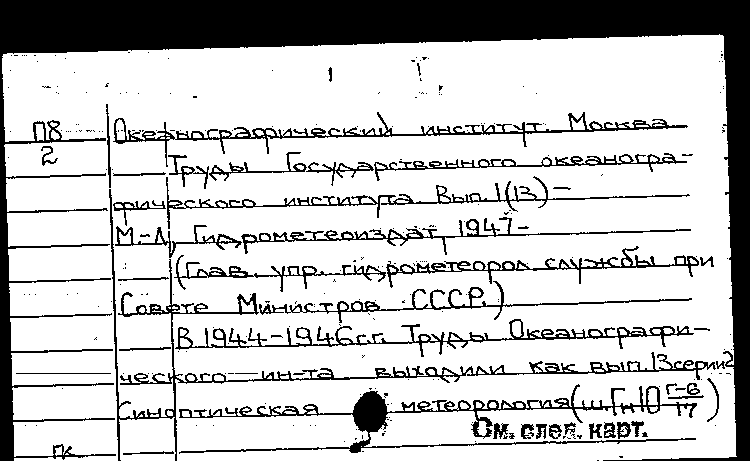 П8 Океанографический институт. Москва
2 Труды Государственного океаногра-
фического института. Вып. 1(13)-
М.-Л., Гидрометеоиздат, 1947-
(Глав. упр. гидрометеорол. службы при
Совете Министров СССР.)
В 1944-1946 г.г. Труды Океанографи-
ческого ин-та выходили как вып. 13 серии 2
Синоптическая метеорология (ш. Гн10 Г-6/17)
См. след. карт.
ГК